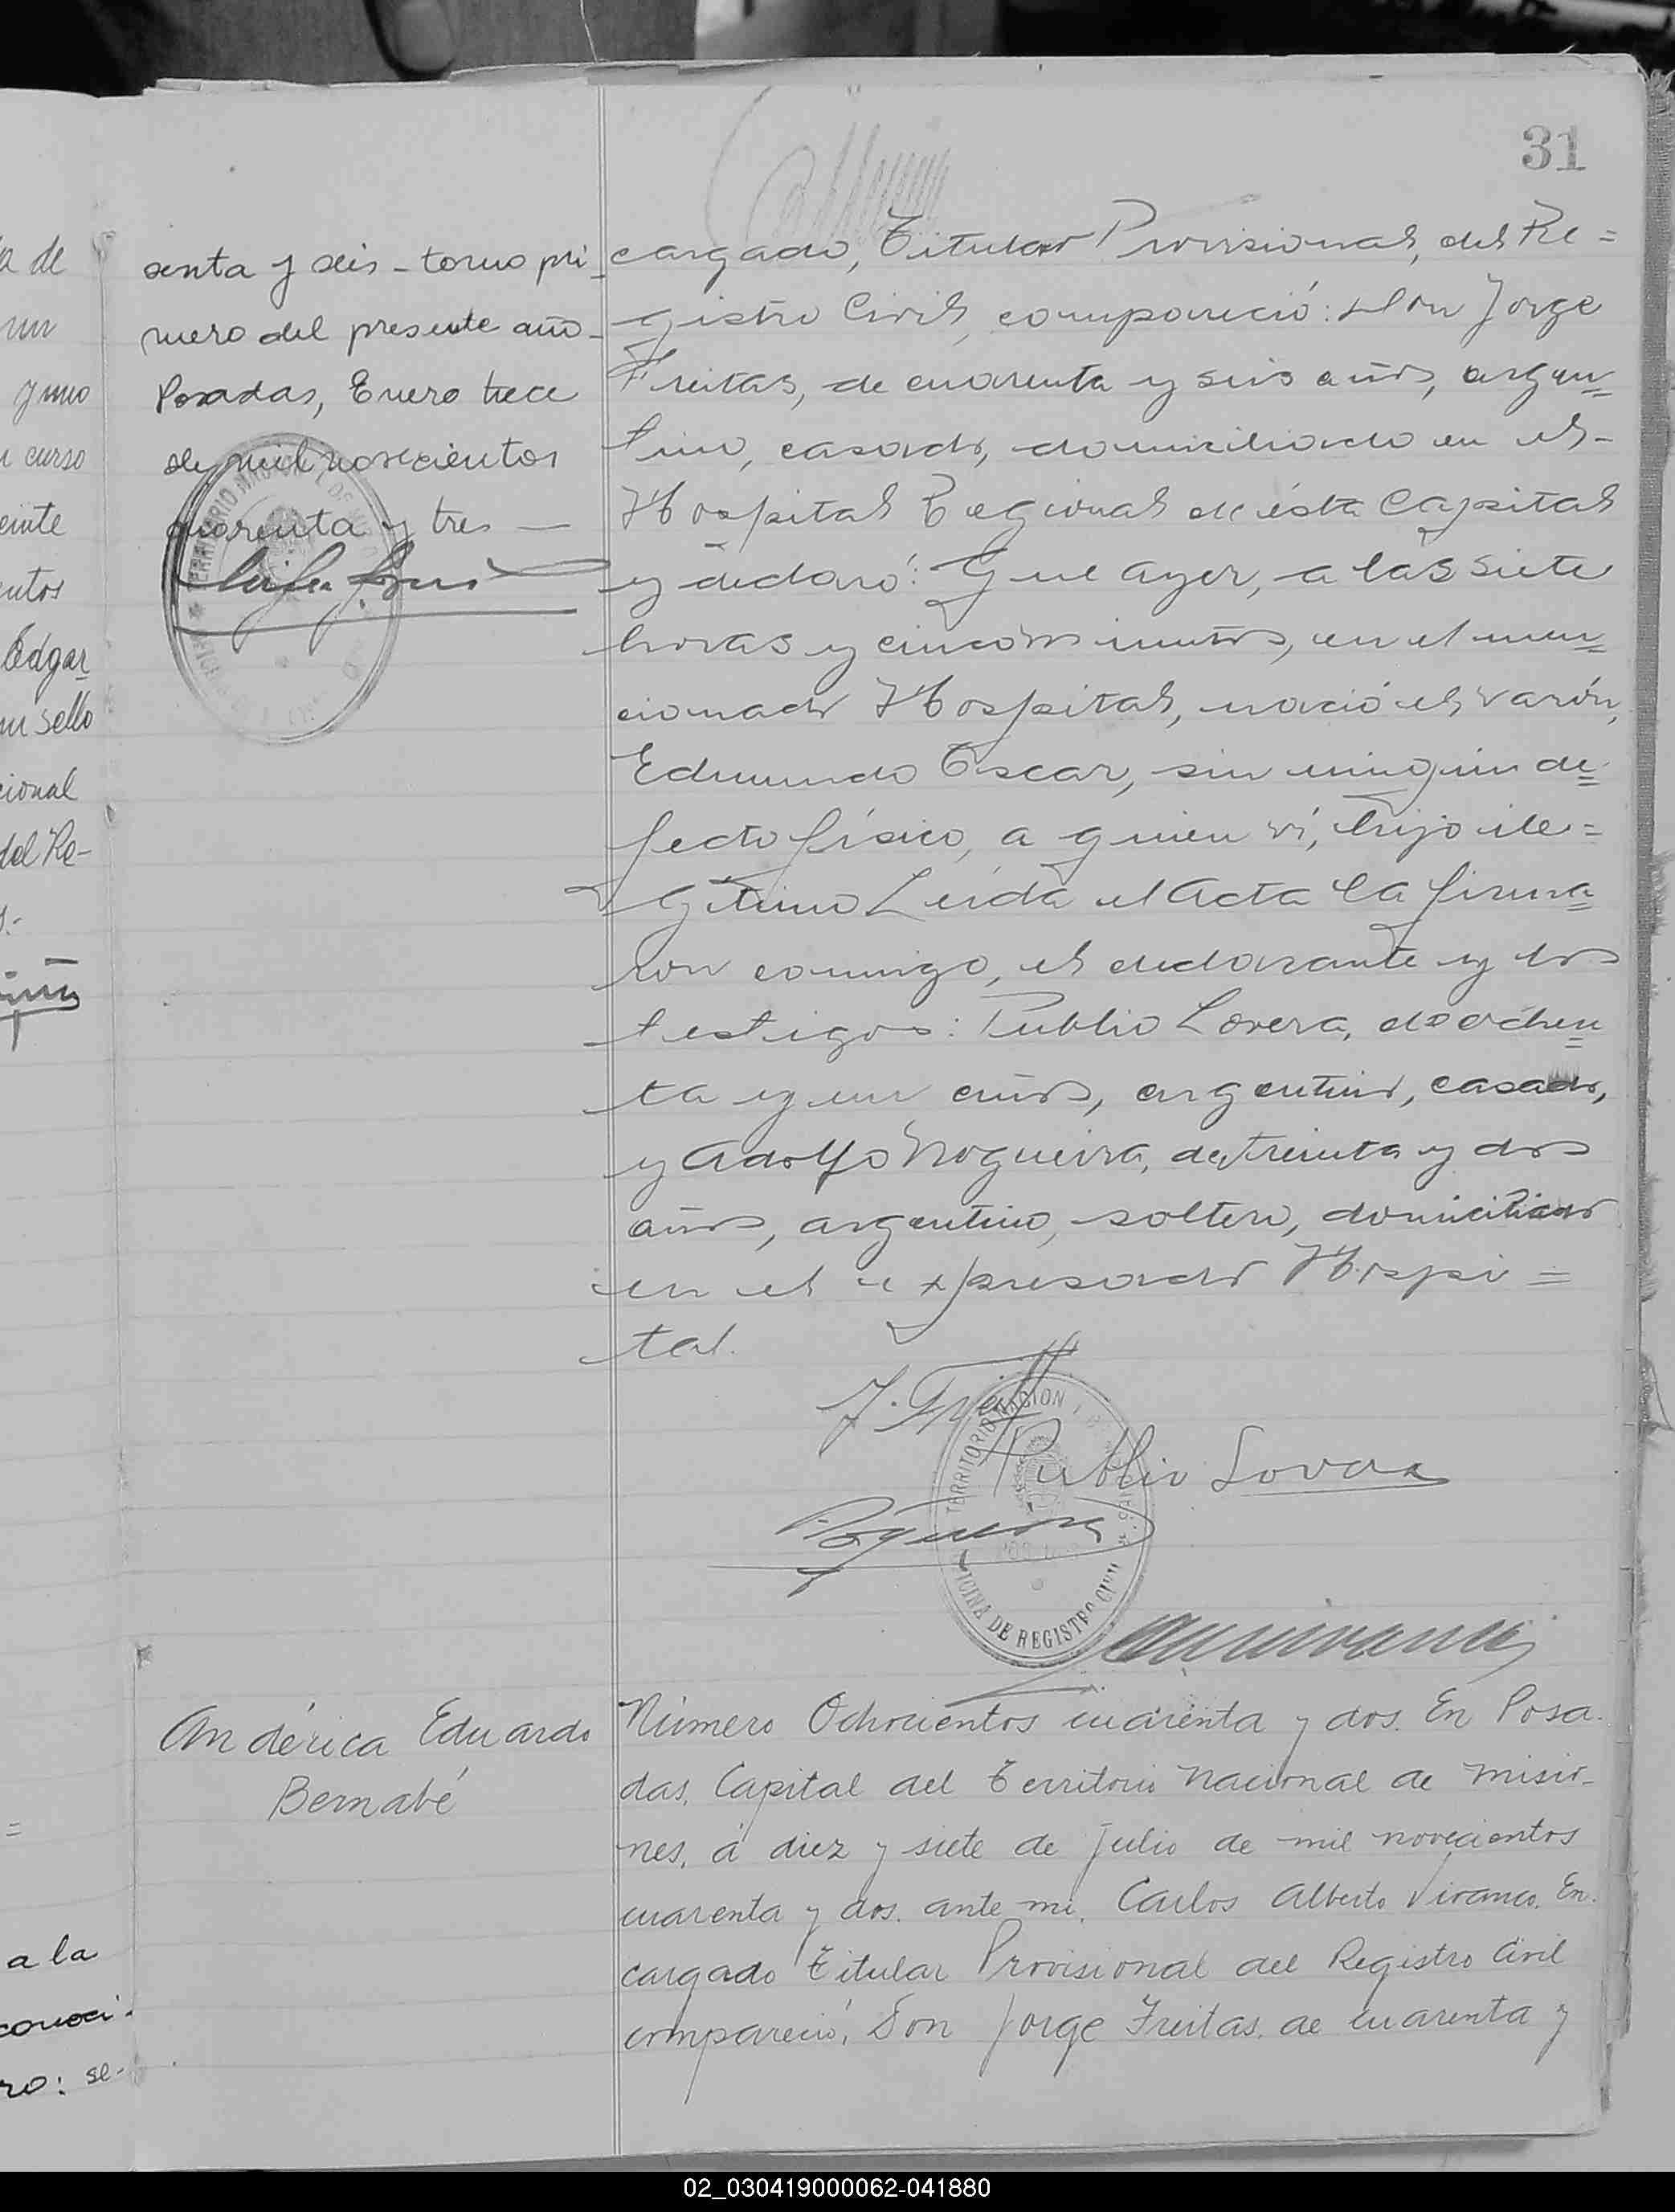 31
senta y seis - tomo pri-
mero del presente año-
Posadas, Enero trece
de mil novecientos
cuarenta y tres —
cargado, Titular Provisional, del Re=
gistro Civil, compareció: Don Jorge
Freitas, de cuarenta y seis años, argen=
tino, casado, domiciliado en el-
Hospital Regional de ésta Capital
y declaró: Que ayer, a las siete
horas y cinco minutos, en el men=
cionado Hospital, nació el varón,
Edmundo Oscar, sin ningún de=
fecto físico, a quien ví, hijo ile=
gítimo Leída el Acta la firma=
ron conmigo, el declarante y los
testigos: Publio Lovera, de ochen=
ta y un años, argentino, casado,
y Adolfo Nogueira, de treinta y dos
años, argentino, soltero, domiciliados
en el expresado Hospi=
tal.
Publio Lovera
TERRITORIO NACION
OFICINA DE REGISTRO CIVIL
Andérica Eduardo
Bernabé
Número Ochocientos cuarenta y dos. En Posa-
das, Capital del Territorio Nacional de Misio-
nes, á diez y siete de Julio de mil novecientos
cuarenta y dos. ante mi, Carlos Alberto Vivanco, En-
cargado Titular Provisional del Registro Civil
compareció, Don Jorge Freitas, de cuarenta y
a de
un
y uno
n curso
einte
entos
Edgar
mi sello
cional
del Re-
a la
conoci-
ro: se-
02_030419000062-041880